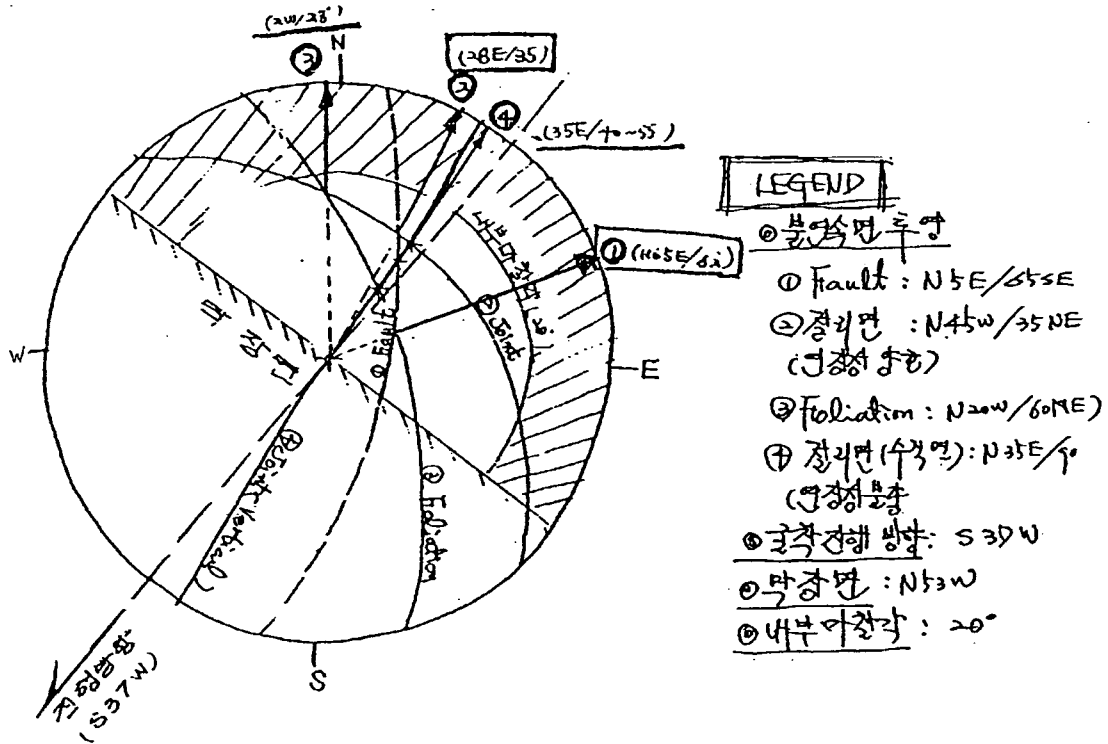 (2W/28°)
N
③
(28E/35)
②
④
(35E/40~55)
① (N65E/62)
내부마찰각 (20°)
② Joint
① Fault
막장면
W
E
④ Joint (Vertical)
③ Foliation
S
진행방향
(S37W)
LEGEND
◎ 불연속면 투영
① Fault : N5E/65SE
② 절리면 : N45W/35NE
(연장성 양호)
③ Foliation : N20W/60NE)
④ 절리면(수직면) : N35E/90
(연장성 불량
◎ 굴착진행 방향 : S37W
◎ 막장면 : N53W
◎ 내부마찰각 : 20°